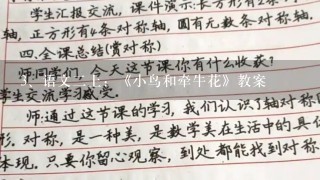 学生汇报交流，课件演示：长方形有2条对称
轴，正方形有4条对称轴，圆有无数条对称轴.
四.全课总结(赏对称)
师:同学们，今天这节课你有什么收获？
3、语文一上，《小鸟和牵牛花》教案
学生交流学习感受.
师:通过这节课的学习，我们认识了轴对称图
形.对称，是一种美，是数学美在生活中的具体
体现.只要你留心观察，到处都能找到对称